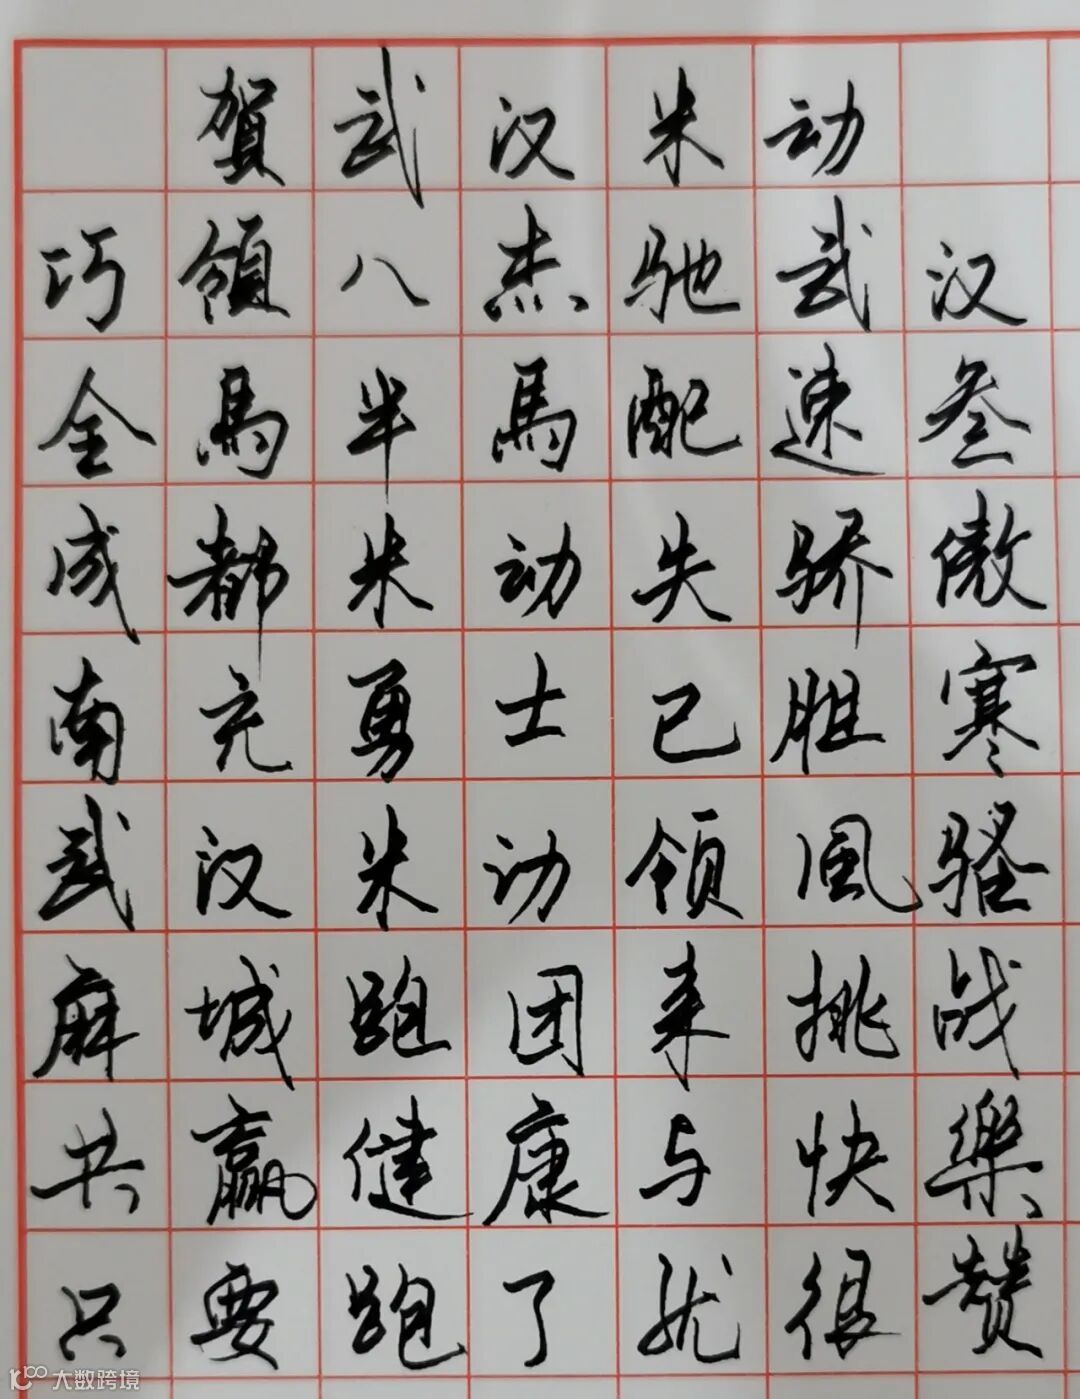 賀武汉米动
巧領八杰驰武汉
全馬半馬配速叁
成都米动失骄傲
南充勇士已胆寒
武汉米动领風骚
麻城跑团来挑战
共赢健康与快樂
只要跑了就很赞
大数跨境